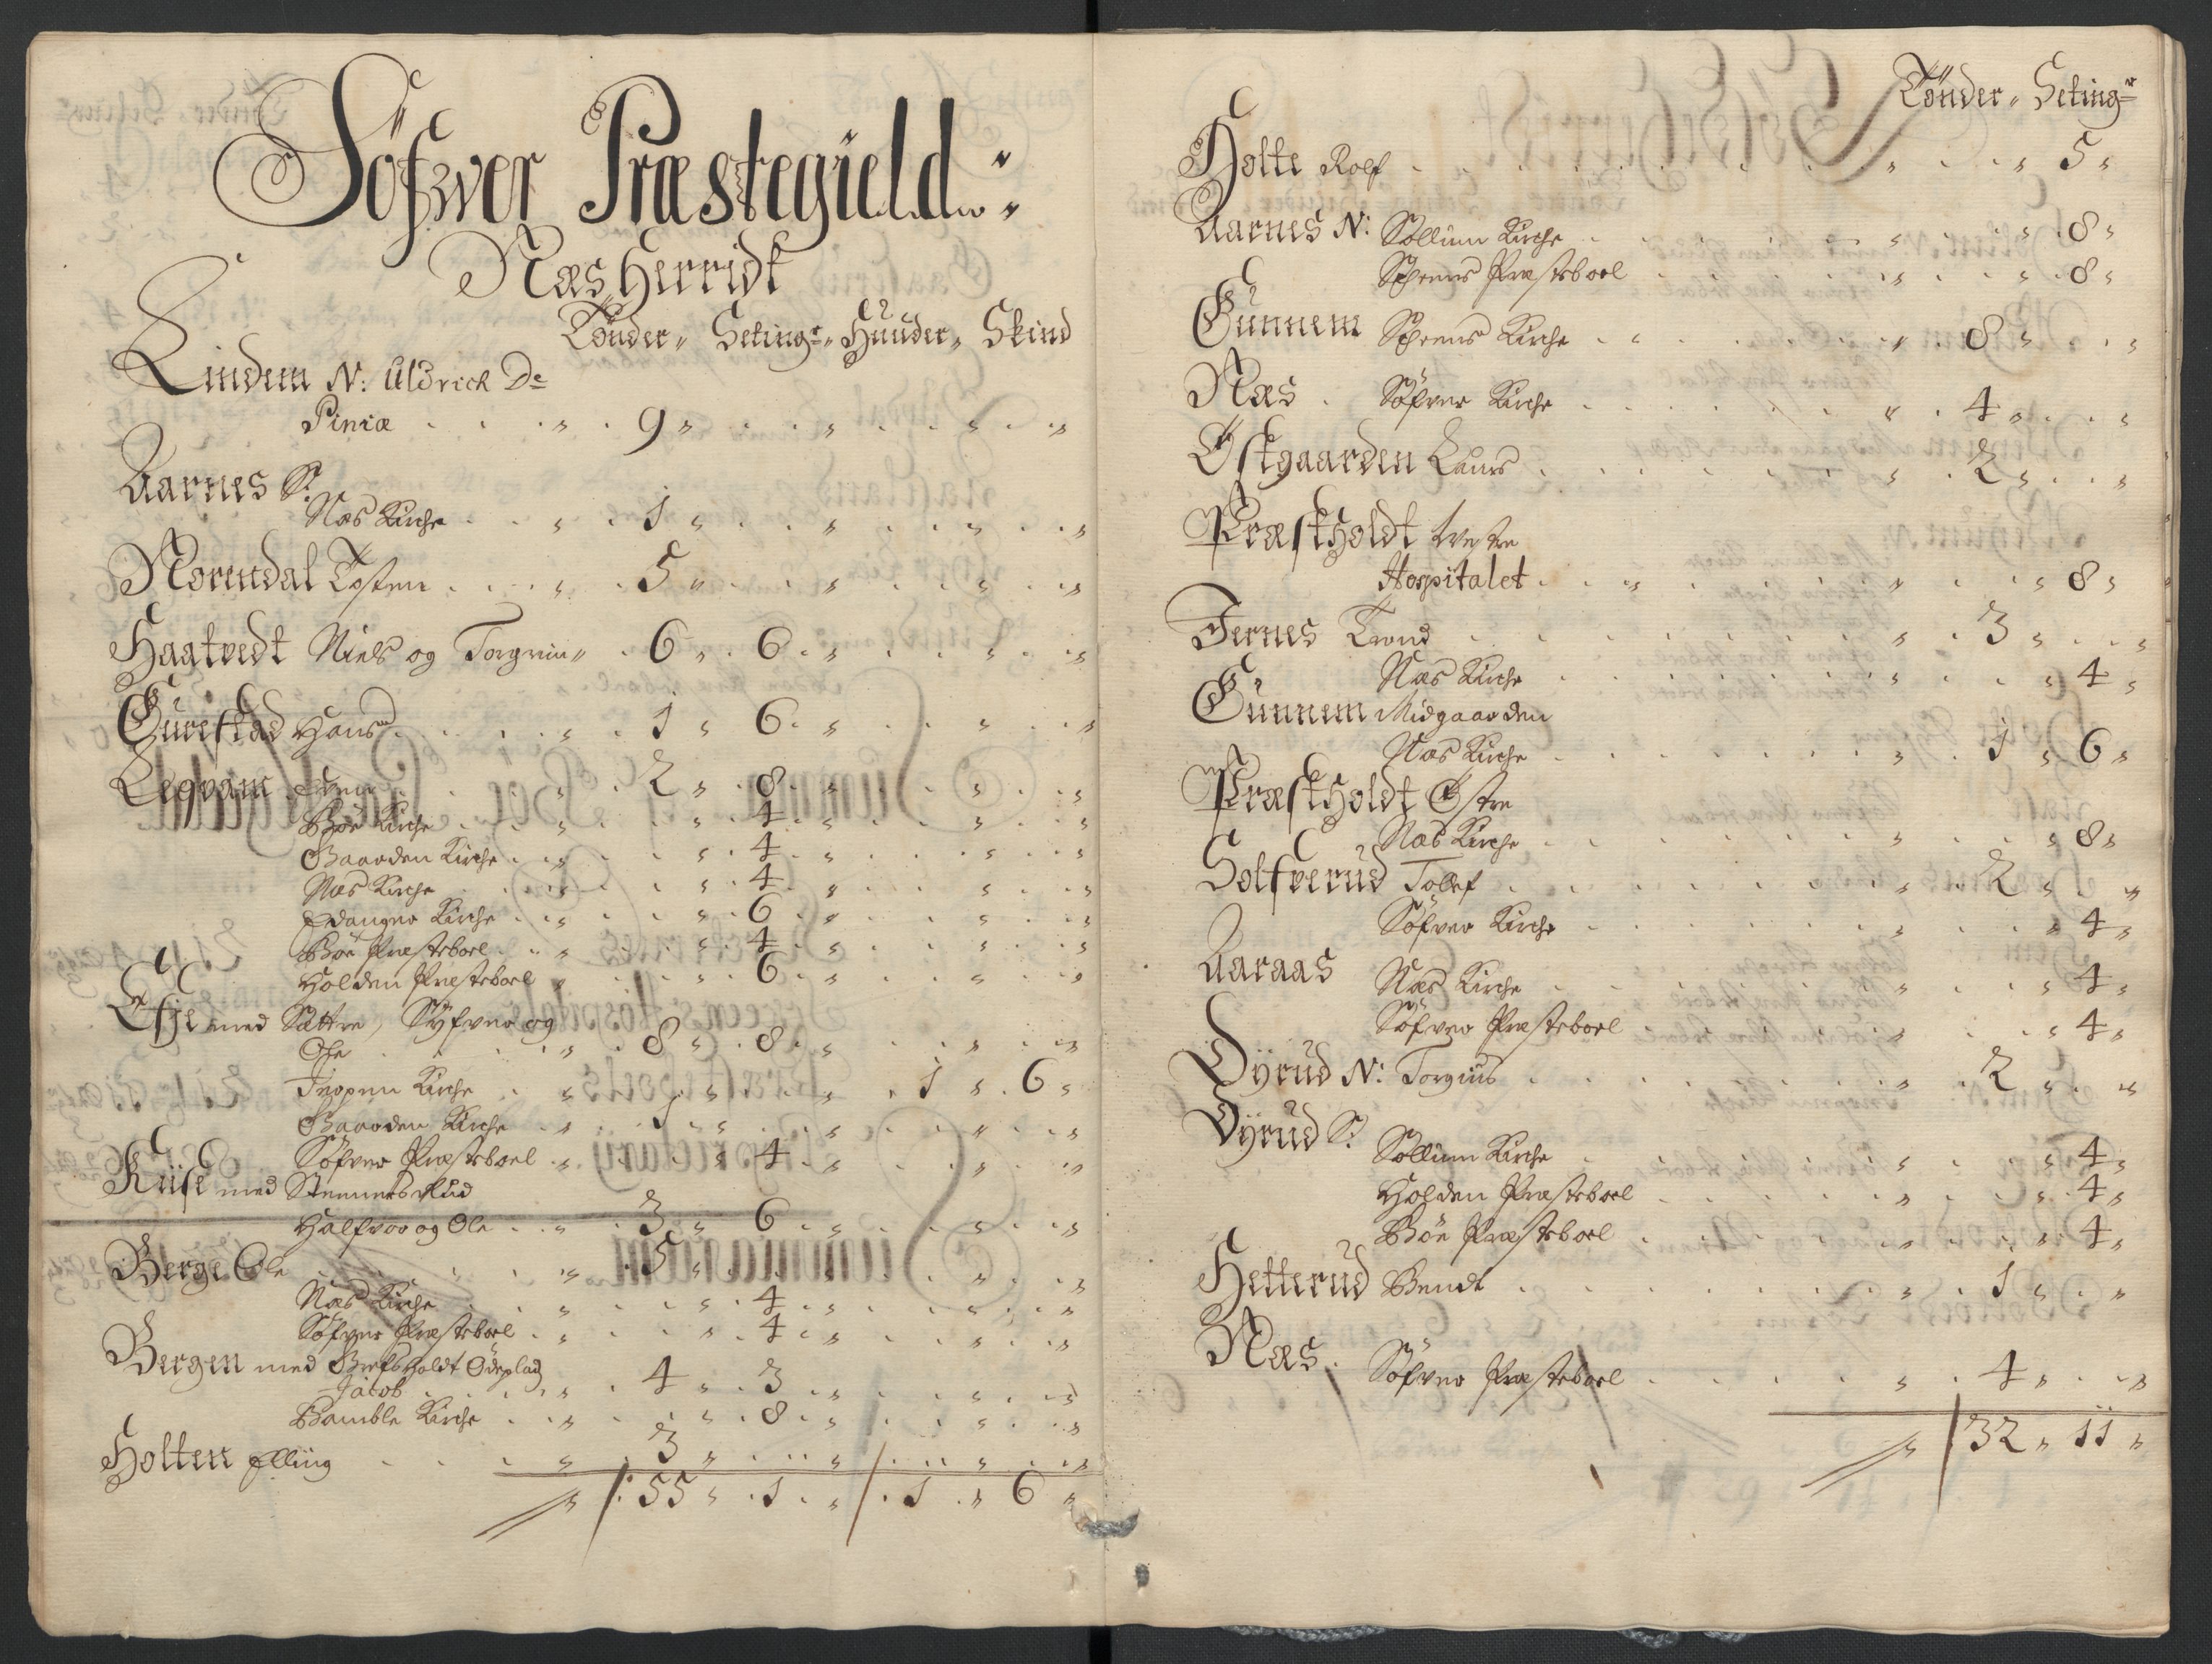 Söfwer Præstegield
Næs Herridt
Tönder Setingr Huuder Skind
Lindem N: Uldrich De
Piniæ 9
Aarnes S:
Næs Kirche 1
Norendal Tosten 5
Haatvedt Niels og Torgrim 6 6
Gurestad Hans 1 6
Legvam Even 2 8
Böe Kirche 4
Gaarden Kirche 4
Næs Kirche 4
Edanger Kirche 6
Böe Præsteboel 4
Holden Præsteboel 6
Efje med Sættre, Söfver og
Ole 8 8
Tropen Kirche 1 6
Gaarden Kirche 1
Söfver Præsteboel 4
Kiise med Stennersrud
Halfvor og Ole 3 6
Berge Ole 5
Næs Kirche 4
Söfver Præsteboel 4
Bergen med Grefsholdt Ödeplads
Jacob 4 3
Bamble Kirche 8
Holten Elling 3
55 1 1 6
Tönder Setingr
Holte Rolf 5
Aarnes N: Sollum Kirche 8
Scheens Præsteboel 8
Gunnem Scheens Kirche 8
Næs Söfver Kirche 4
Östgaarden Laurs 2
Præstholdt Westre
Hospitalet 8
Jernes Trond 3
Næs Kirche 4
Gunnem Midgaarden
Næs Kirche 1 6
Præstholdt Östre
Næs Kirche 8
Solfverud Tollef 2
Söfver Kirche 4
Aaraas Næs Kirche 4
Söfver Præsteboel 4
Dyrud N: Torgius 2
Dyrud S:
Sollum Kirche 4
Holden Præsteboel 4
Böe Præsteboel 4
Hetterud Bendt 1
Næs.
Söfver Præsteboel 4
32 11